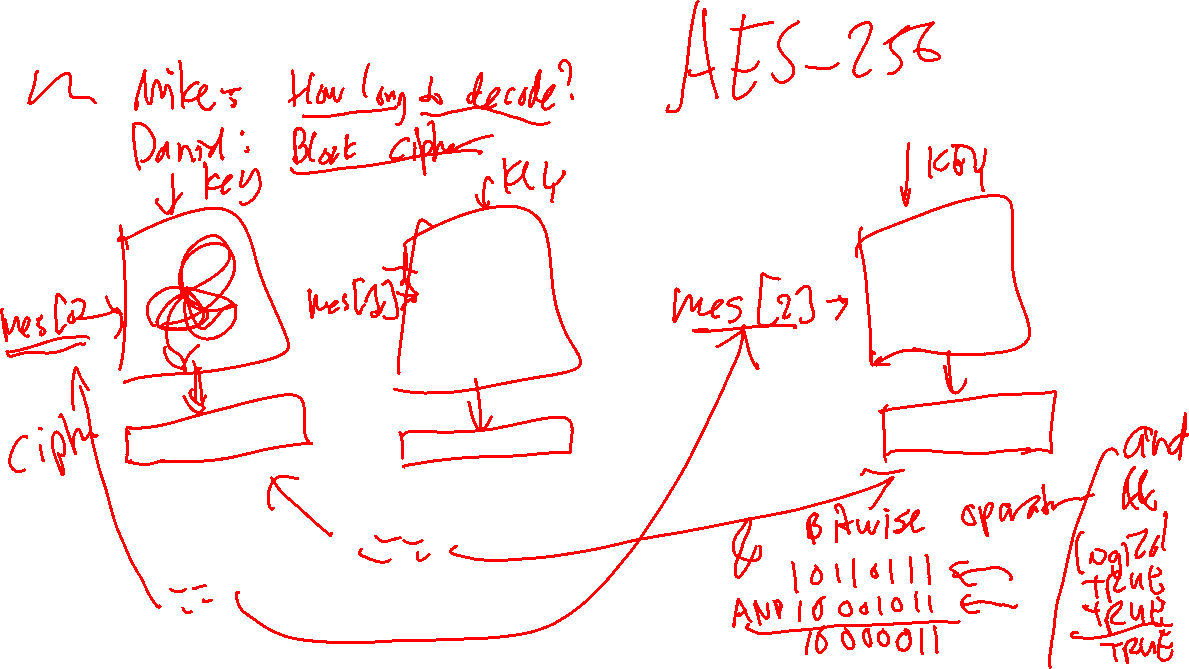 AES-256
Mike: How long to decode?
Daniel: Block cipher
key
key
KEY
mes[0]
mes[1]
mes[2]
Ciph
==
==
& Bitwise operator
10110111
AND 10001011
10000011
and
&&
logical
TRUE
TRUE
TRUE